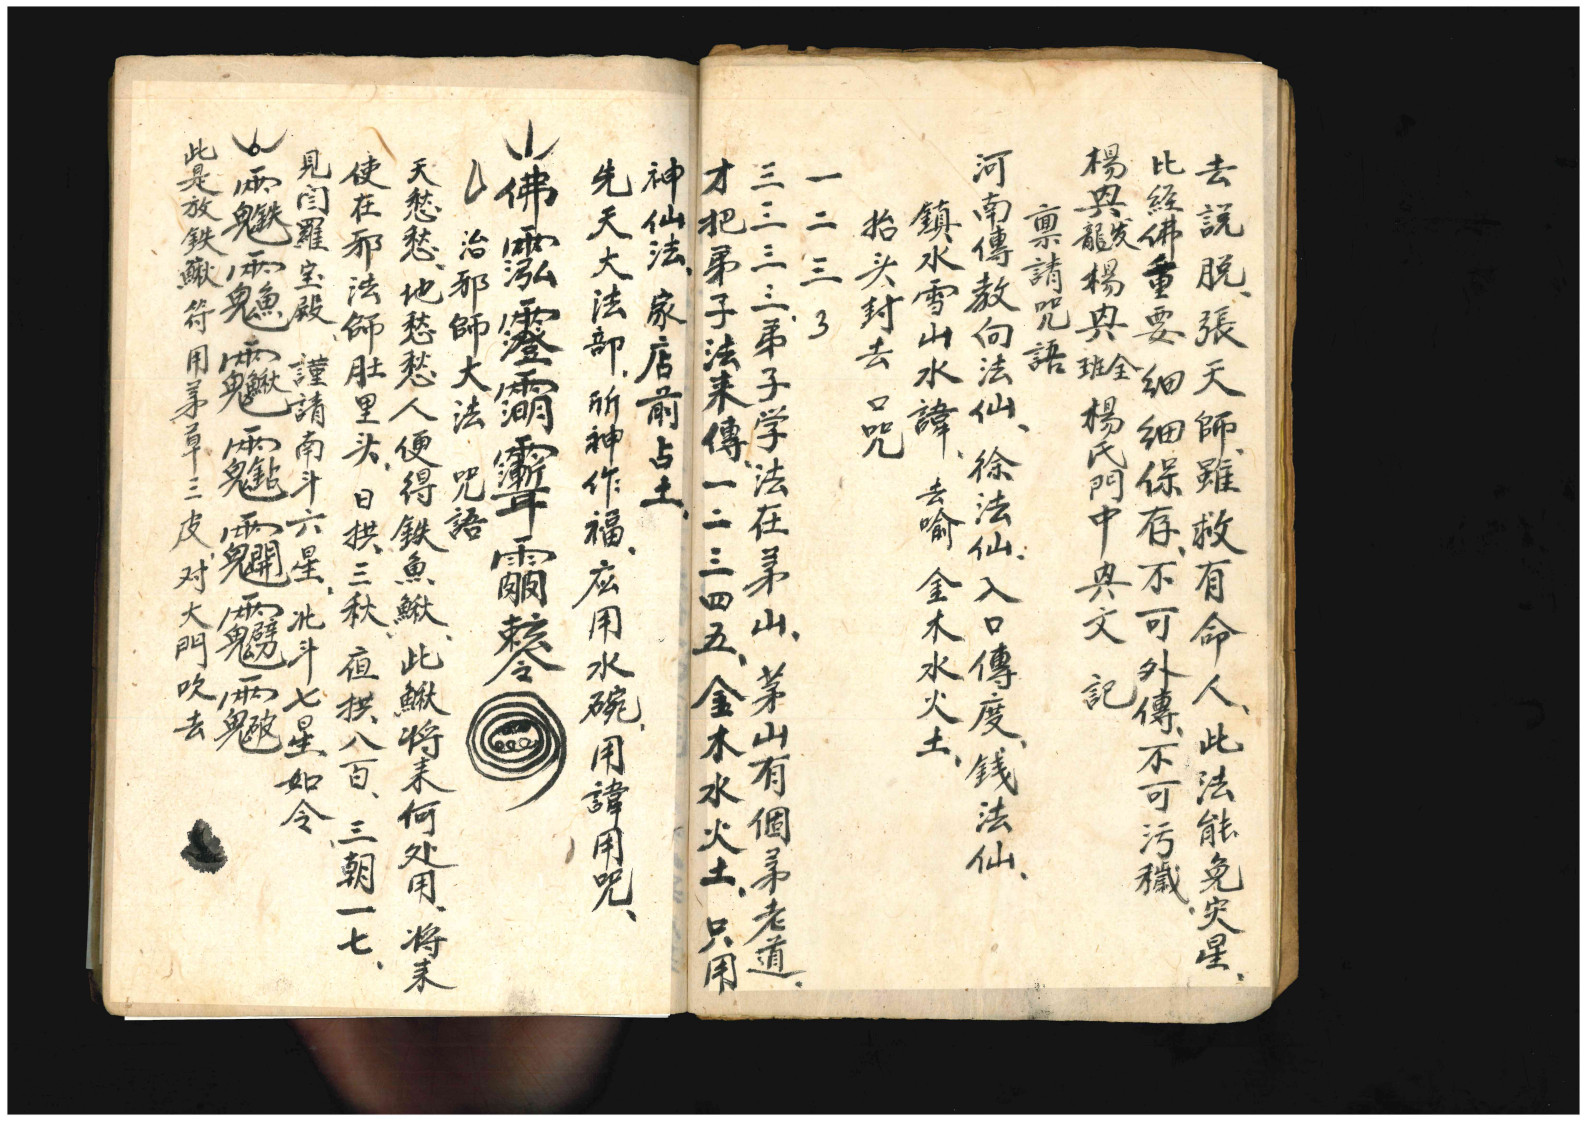 去説脫、張天師、雖救有命人、此法能免灾星、
比經佛重要細細保存、不可外傳、不可污穢、
楊興發龍楊興全班楊氏門中興文記
禀請咒語
河南傳教何法仙、徐法仙、入口傳度、錢法仙、
鎮水雪山水諱、去喻金木水火土、
抬头封去口咒
一二三3
三三三三、弟子学法在茅山、茅山有個茅老道、
才把弟子法来傳、一二三四五、金木水火土、只用
神仙法、家店前占土、
先天大法部、所神作福、应用水碗、用諱用咒、
佛
治邪師大法咒語
天愁愁、地愁愁人便得鉄魚鰍、此鰍将来何处用、将来
使在邪法師肚里头、日拱、三秋、夜拱、八百、三朝一七、
見閆羅宝殿、謹請南斗六星、北斗七星、如令
此是放鉄鰍符用茅草三皮、对大門吹去